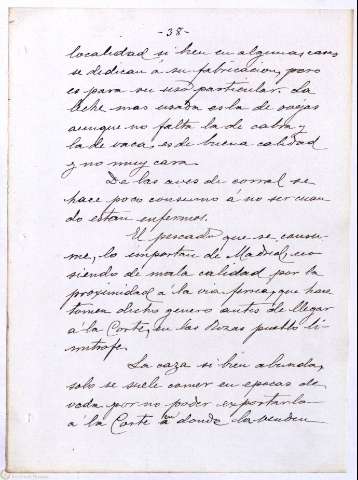 -38-
localidad si bien en algunas casas
se dedican á su fabricacion, pero
es para su uso particular. La
leche mas usada es la de ovejas
aunque no falta la de cabra y
la de vaca, es de buena calidad
y no muy cara.
De las aves de corral se
hace poco consumo á no ser cuan
do estan enfermos.
El pescado que se consu-
me, lo importan de Madrid, no
siendo de mala calidad por la
proximidad á la via ferrea, que hace
tomen dicho genero antes de llegar
á la Corte, en las Rozas pueblo li-
mitrofe.
La caza si bien abunda,
solo se suele comer en epocas de
veda por no poder exportarlo
á la Corte en donde la venden